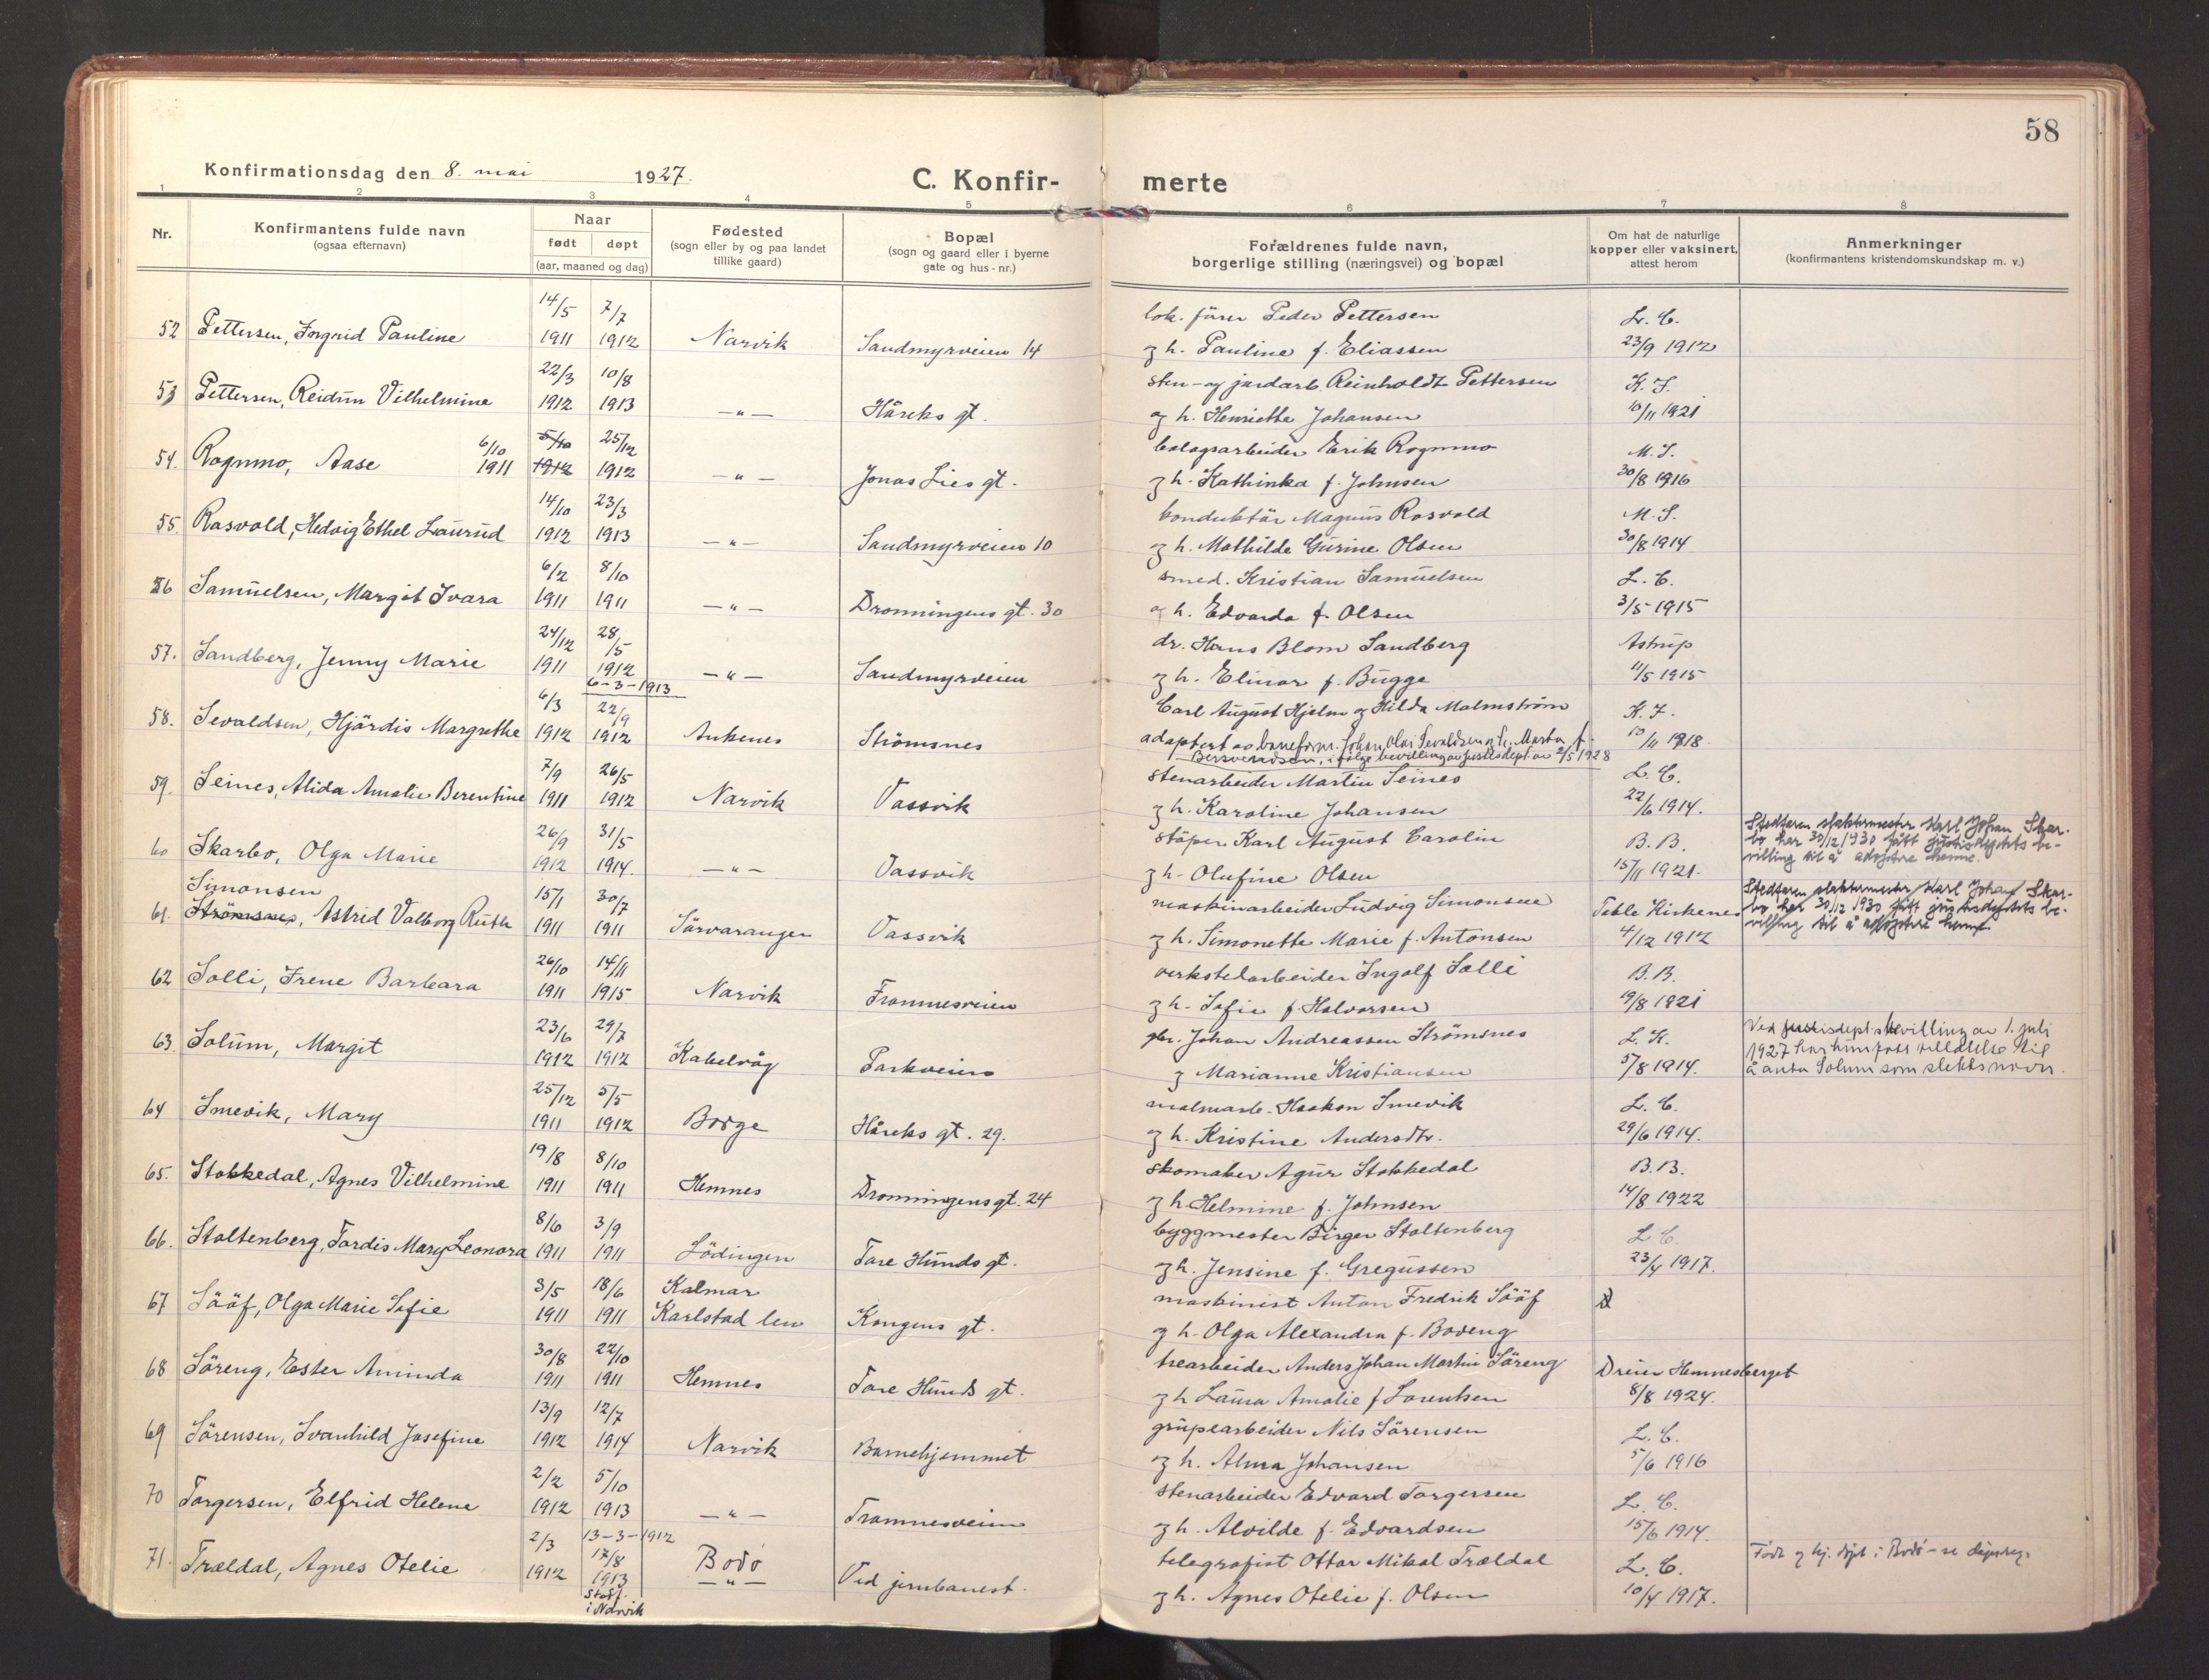 58
Konfirmationsdag den 8. mai 1927.
C. Konfir- merte
1 2 3 4 5 6 7 8
Nr.
Konfirmantens fulde navn
(ogsaa efternavn)
Naar
født døpt
(aar, maaned og dag)
Fødested
(sogn eller by og paa landet
tillike gaard)
Bopæl
(sogn og gaard eller i byerne
gate og hus-nr.)
Forældrenes fulde navn,
borgerlige stilling (næringsvei) og bopæl
Om hat de naturlige
kopper eller vaksinert,
attest herom
Anmerkninger
(konfirmantens kristendomskundskap m. v.)
14/5 7/7 lok. fører Peder Pettersen L. C.
52 Pettersen, Ingrid Pauline 1911 1912 Narvik Sandmyrveien 14 og h. Pauline f. Eliassen 23/9 1912
22/3 10/8 sten- og jordarb. Reinholdt Pettersen K. J.
53 Pettersen, Reidun Vilhelmine 1912 1913 — " — Håreks gt. og h. Henriette Johansen 10/11 1921
6/10 5/10 25/12 bolagsarbeider Erik Rognmo M. S.
54. Rognmo, Aase 1911 1912 1912 — " — Jonas Lies gt. og h. Kathinka f. Johnsen 30/8 1916
14/10 23/3 konduktör Magnus Rasvold M. S.
55. Rasvold, Hedvig Ethel Laurud 1912 1913 — " — Sandmyrveien 10 og h. Mathilde Gurine Olsen 30/8 1914
6/2 8/10 smed. Kristian Samuelsen L. C.
56 Samuelsen, Margit Ivara 1911 1911 — " — Dronningens gt. 30 og h. Edvarda f. Olsen 3/5 1915
24/12 28/5 dr. Hans Blom Sandberg Astrup
57. Sandberg, Jenny Marie 1911 1912 — " — Sandmyrveien og h. Elinor f. Bugge 11/5 1915
6-3-1913
6/3 22/9 Carl August Hjelm og Hilda Malmstrøm K. J.
58. Sevaldsen, Hjördis Margrethe 1912 1912 Ankenes Strömsnes adoptert av baneform. Johan Olai Sevaldsen og h. Marta f. 10/11 1918.
Bersvendsen, i følge bevilling av Justisdept. av 2/5 1928
7/9 26/5 stenarbeider Martin Seines L. C.
59. Seines, Alida Amalie Berentine 1911 1912 Narvik Vassvik og h. Karoline Johansen 22/6 1914.
26/9 31/5 stöper Karl August Carolin B. B.
60 Skarbo, Olga Marie 1912 1914. — " — Vassvik og h. Olufine Olsen 15/11 1921.
Stedfaren slaktermester Karl Johan Skar-
bo har 30/12 1930 fått justisdeptets be-
villing til å adoptere henne.
Simonsen 15/1 30/7 maskinarbeider Ludvig Simonsen
61. Strömsnes, Astrid Valborg Ruth 1911 1911 Sörvaranger Vassvik og h. Simonette Marie f. Antonsen 4/12 1912
Kirkenes
Stedfaren slaktermester Karl Johan Skar-
bo har 30/12 1930 fått justisdeptets be-
villing til å adoptere henne
26/10 14/11 verkstedarbeider Ingolf Solli B. B.
62 Solli, Irene Barbara 1911 1915 Narvik Framnesveien og h. Sofie f. Halvorsen 19/8 1921
23/6 29/7 Johan Andreassen Strömsnes L. K.
63. Solum, Margit 1912 1912 Kabelvåg Parkveien og Marianne Kristiansen 5/8 1914.
Ved justisdept.s bevilling av 1. juli
1927 har hun fått tillatelse til
å anta Solum som slektsnavn.
25/12 5/5 malmarb. Haakon Smevik L. C.
64 Smevik, Mary 1911 1912 Borge Håreks gt. 29. og h. Kristine Andersdtr. 29/6 1914.
19/8 8/10 skomaker Agur Stokkedal B. B.
65. Stokkedal, Agnes Vilhelmine 1911 1911 Hemnes Dronningens gt. 24 og h. Helmine f. Johnsen 14/8 1922
8/6 3/9 byggmester Birger Stoltenberg L. C.
66. Stoltenberg, Tordis Mary Leonora 1911 1911 Lödingen Tore Hunds gt. og h. Jensine f. Gregussen 23/4 1917.
3/5 18/6 Kalmar maskinist Anton Fredrik Sööf
67 Sööf, Olga Marie Sofie 1911 1911 Karlstad len Kongens gt. og h. Olga Alexandra f. Bodeng
30/8 22/10 trearbeider Anders Johan Martin Söreng Dreier Hemnesberget
68 Söreng, Ester Aminda 1911 1911 Hemnes Tore Hunds gt. og h Laura Amalie f Lorentsen 8/8 1924.
13/9 12/7 grupearbeider Nils Sörensen L. C.
69 Sörensen, Svanhild Josefine 1912 1914 Narvik Barnehjemmet og h. Alma Johansen 5/6 1916
2/2 5/10 stenarbeider Edvard Torgersen L. C.
70 Torgersen, Elfrid Helene 1912 1913 — " — Framnesveien og h. Alvilde f. Edvardsen 15/6 1914.
2/3 13-3-1912
17/8 Bodö telegrafist Ottar Mikal Trældal L. C.
71. Trældal, Agnes Otelie 1912 1913 — " — Ved jernbanest. og h. Agnes Otelie f. Olsen 10/4 1917.
stadf.
i Narvik
Født og hj. døpt i Bodö - se dåpsreg.